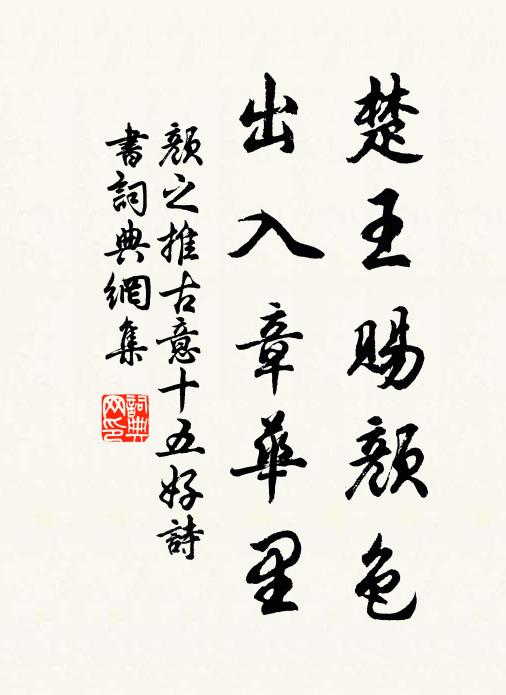 楚王賜顏色
出入章華里
顏之推古意十五好詩
書詞典網集
詞典
网印